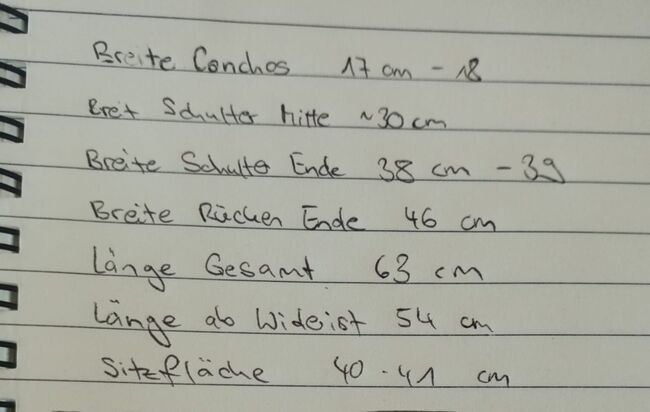 Breite Conchos 17 cm - 18
Breit Schulter Mitte ~30 cm
Breite Schulter Ende 38 cm - 39
Breite Rücken Ende 46 cm
Länge Gesamt 63 cm
Länge ab Wideist 54 cm
Sitzfläche 40 - 41 cm